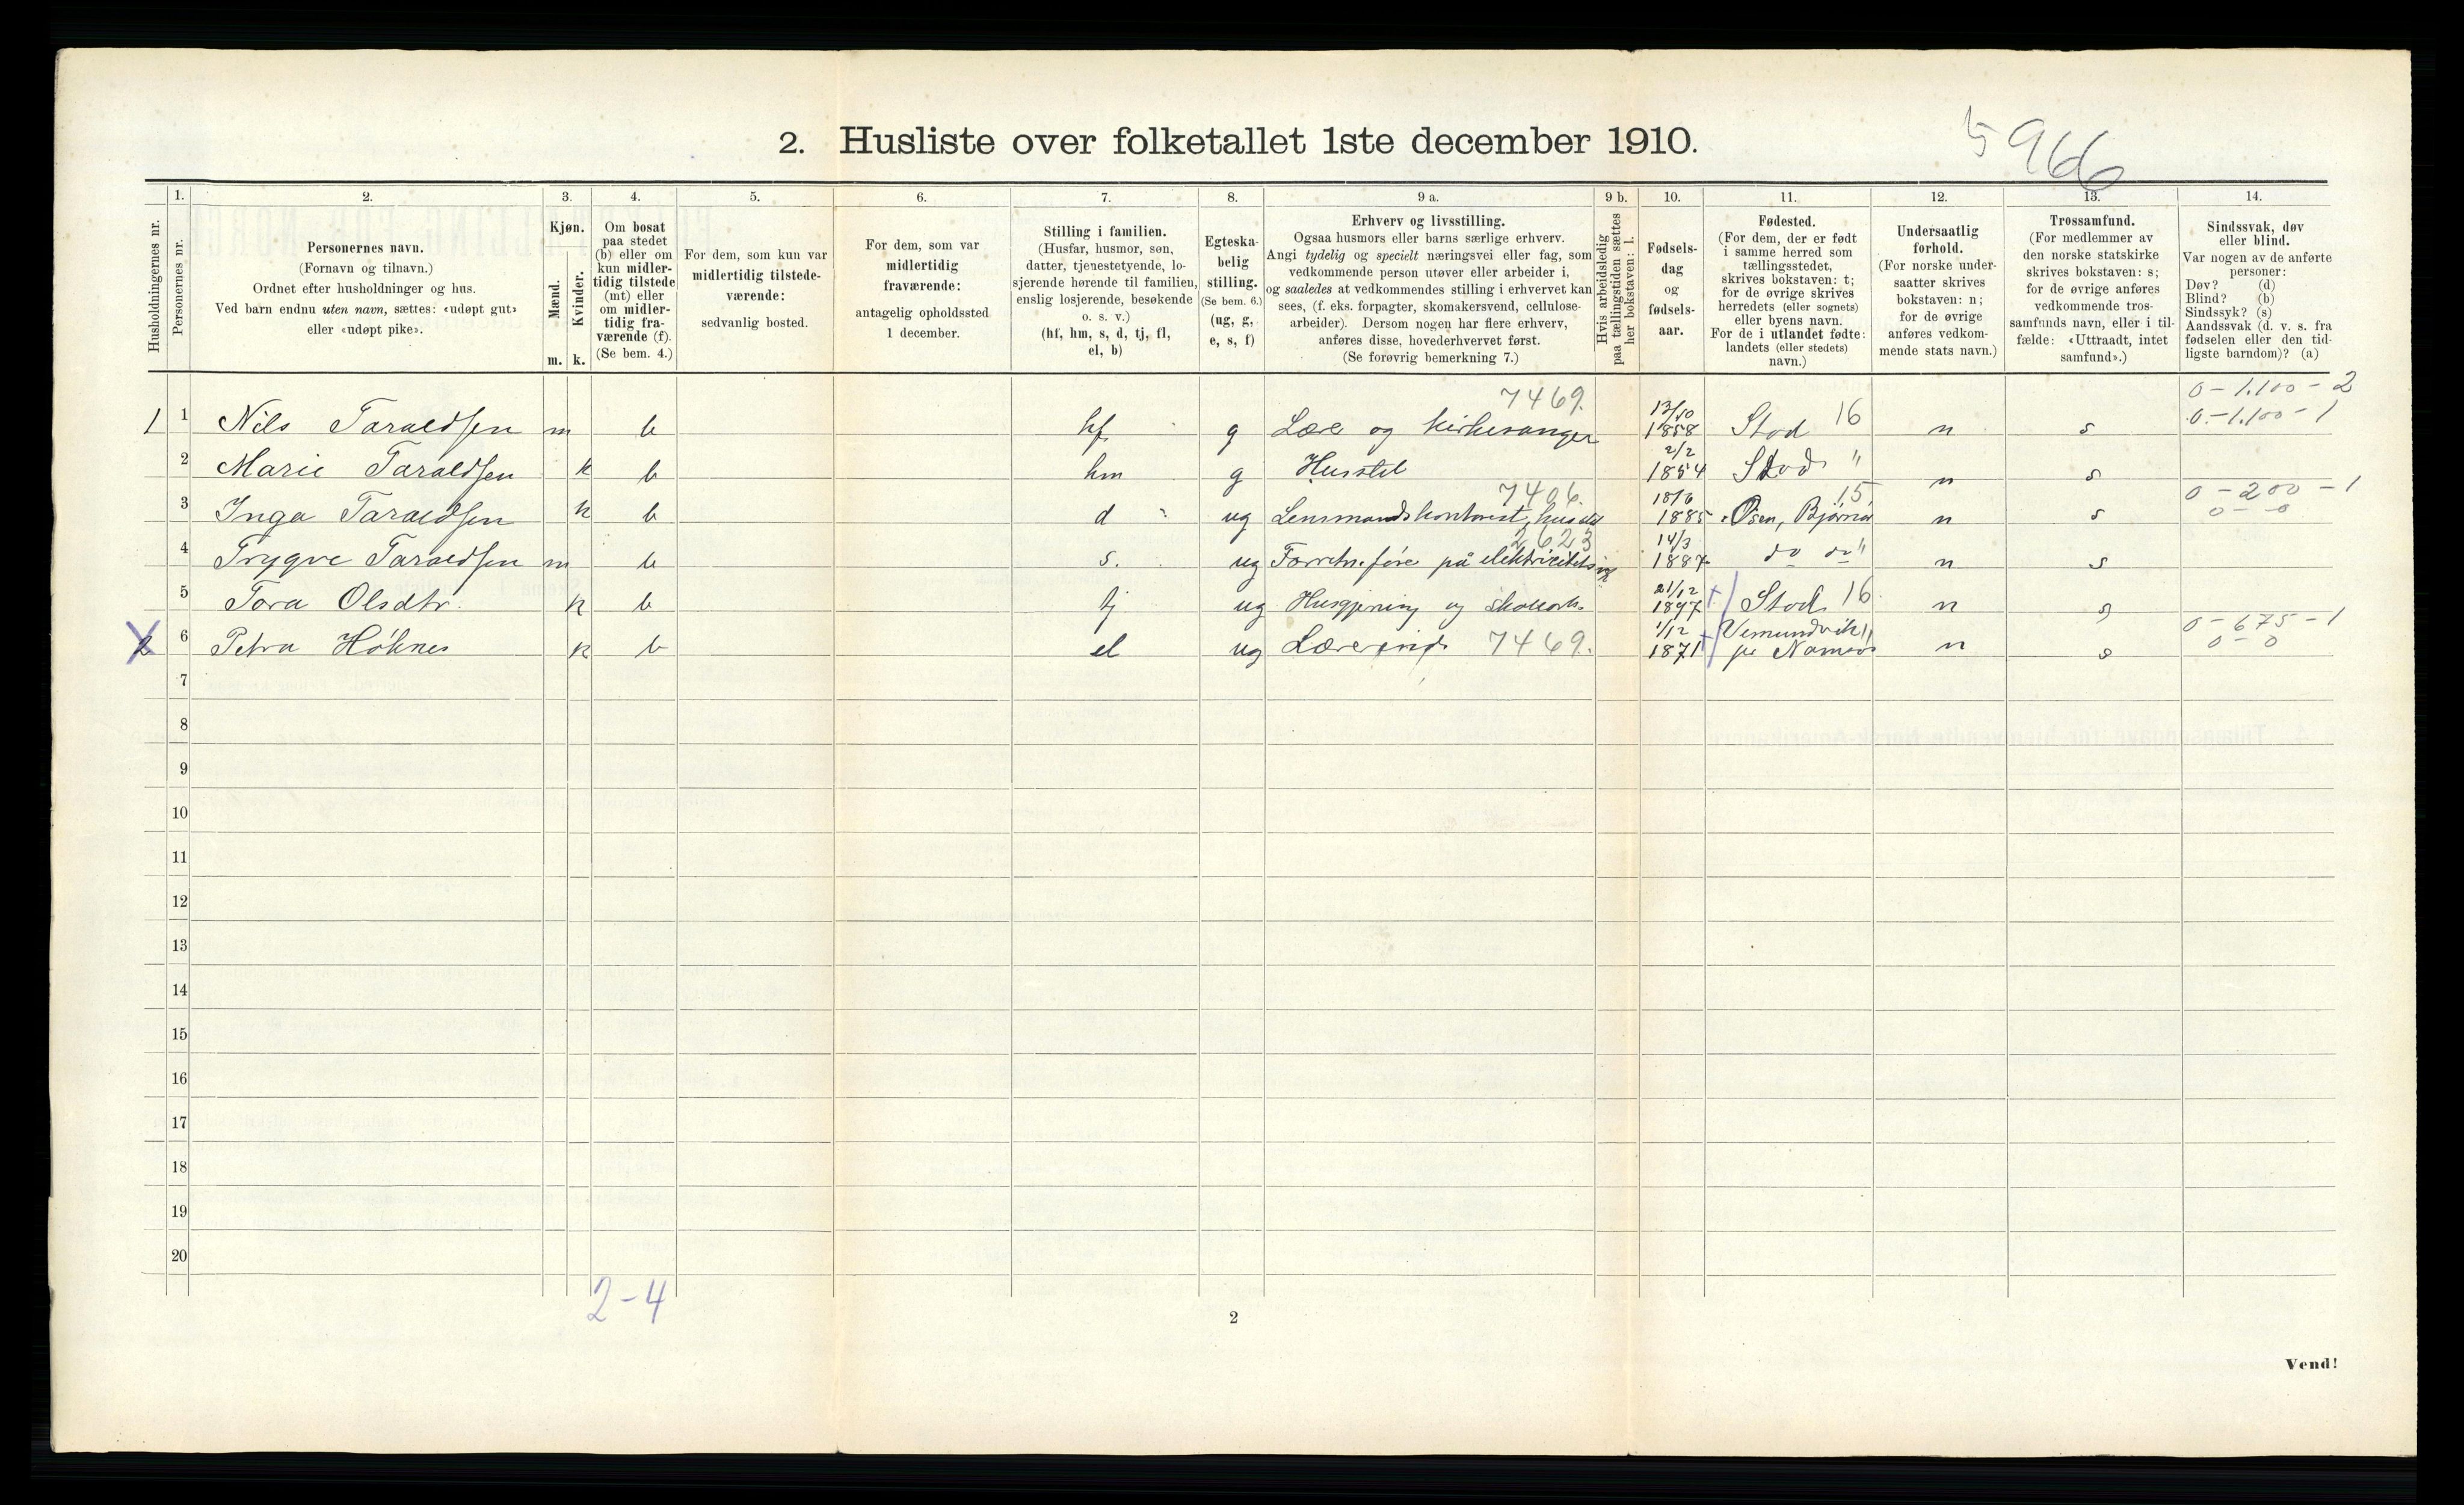 2. Husliste over folketallet 1ste december 1910.
5966
1. 2. 3. 4. 5. 6. 7. 8. 9 a. 9 b. 10. 11. 12. 13. 14.
Husholdningernes nr.
Personernes nr.
Personernes navn.
(Fornavn og tilnavn.)
Ordnet efter husholdninger og hus.
Ved barn endnu uten navn, sættes: «udøpt gut»
eller «udøpt pike».
Kjøn.
Mænd.
Kvinder.
m. k.
Om bosat
paa stedet
(b) eller om
kun midler-
tidig tilstede
(mt) eller
om midler-
tidig fra-
værende (f).
(Se bem. 4.)
For dem, som kun var
midlertidig tilstede-
værende:
sedvanlig bosted.
For dem, som var
midlertidig
fraværende:
antagelig opholdssted
1 december.
Stilling i familien.
(Husfar, husmor, søn,
datter, tjenestetyende, lo-
sjerende hørende til familien,
enslig losjerende, besøkende
o. s. v.)
(hf, hm, s, d, tj, fl,
el, b)
Egteska-
belig
stilling.
(Se bem. 6.)
(ug, g,
e, s, f)
Erhverv og livsstilling.
Ogsaa husmors eller barns særlige erhverv.
Angi tydelig og specielt næringsvei eller fag, som
vedkommende person utøver eller arbeider i,
og saaledes at vedkommendes stilling i erhvervet kan
sees, (f. eks. forpagter, skomakersvend, cellulose-
arbeider). Dersom nogen har flere erhverv,
anføres disse, hovederhvervet først.
(Se forøvrig bemerkning 7.)
Hvis arbeidsledig
paa tællingstiden sættes
her bokstaven: l.
Fødsels-
dag
og
fødsels-
aar.
Fødested.
(For dem, der er født
i samme herred som
tællingsstedet,
skrives bokstaven: t;
for de øvrige skrives
herredets (eller sognets)
eller byens navn.
For de i utlandet fødte:
landets (eller stedets)
navn.)
Undersaatlig
forhold.
(For norske under-
saatter skrives
bokstaven: n;
for de øvrige
anføres vedkom-
mende stats navn.)
Trossamfund.
(For medlemmer av
den norske statskirke
skrives bokstaven: s;
for de øvrige anføres
vedkommende tros-
samfunds navn, eller i til-
fælde: «Uttraadt, intet
samfund».)
Sindssvak, døv
eller blind.
Var nogen av de anførte
personer:
Døv? (d)
Blind? (b)
Sindssyk? (s)
Aandssvak (d. v. s. fra
fødselen eller den tid-
ligste barndom)? (a)
7469. 13/10 0-1.100-2
1 1 Nils Taraldsen m b hf g Lærer og kirkesanger 1858 Stod 16 n s 0-1.100-1
2/2
2 Marie Taraldsen k b hm g Husstel 1854 Stod " n s
7406. 18/6 15 0-200-1
3 Inga Taraldsen k b d ug Lensmandskontorist, 1885 Osen, Bjørnør n s 0-0
2623 14/3
4 Trygve Taraldsen m b s. ug 1887 do do " n s
21/12
5 Tora Olsdtr. k b tj ug Husgjerning og 1897 Stod 16 n s
1/12 Vemundvik " 0-675-1
2 6 Petra Høknes k b el ug Lærerinde 7469. 1871 pr Namsos n s 0-0
7
8
9
10
11
12
13
14
15
16
17
18
19
20
2-4
2
Vend!